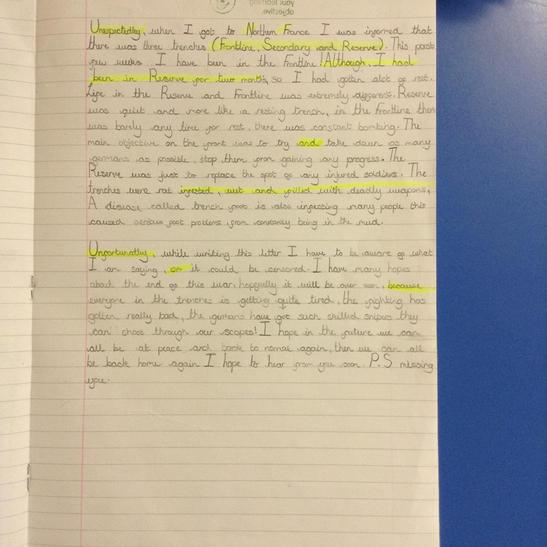 Unexpectedly, when I got to Northern France I was informed that
there was three trenches (Frontline, Secondary and Reserve). This past
few weeks I have been in the frontline! Although, I had
been in Reserve for two months, so I had gotten alot of rest.
Life in the Reserve and Frontline was extremely different. Reserve
was quiet and more like a resting trench, in the Frontline there
was barely any time for rest, there was constant bombing. The
main objective on the front was to try and take down as many
germans as possible, stop them from gaining any progress. The
Reserve was just to replace the spot of any injured soldiers. The
trenches were rat infested, wet and filled with deadly weapons.
A disease called trench foot is also infecting many people this
caused serious foot problems from constantly being in the mud.
Unfortunatly, while writing this letter I have to be aware of what
I am saying, or it could be censored. I have many hopes
about the end of this war, hopefully it will be over soon, because
everyone in the trenches is getting quite tired, the fighting has
gotten really bad, the germans have got such skilled snipers they
can shoot through our scopes! I hope in the future we can
all be at peace and back to normal again, then we can all
be back home again I hope to hear from you soon. P.S missing
you.